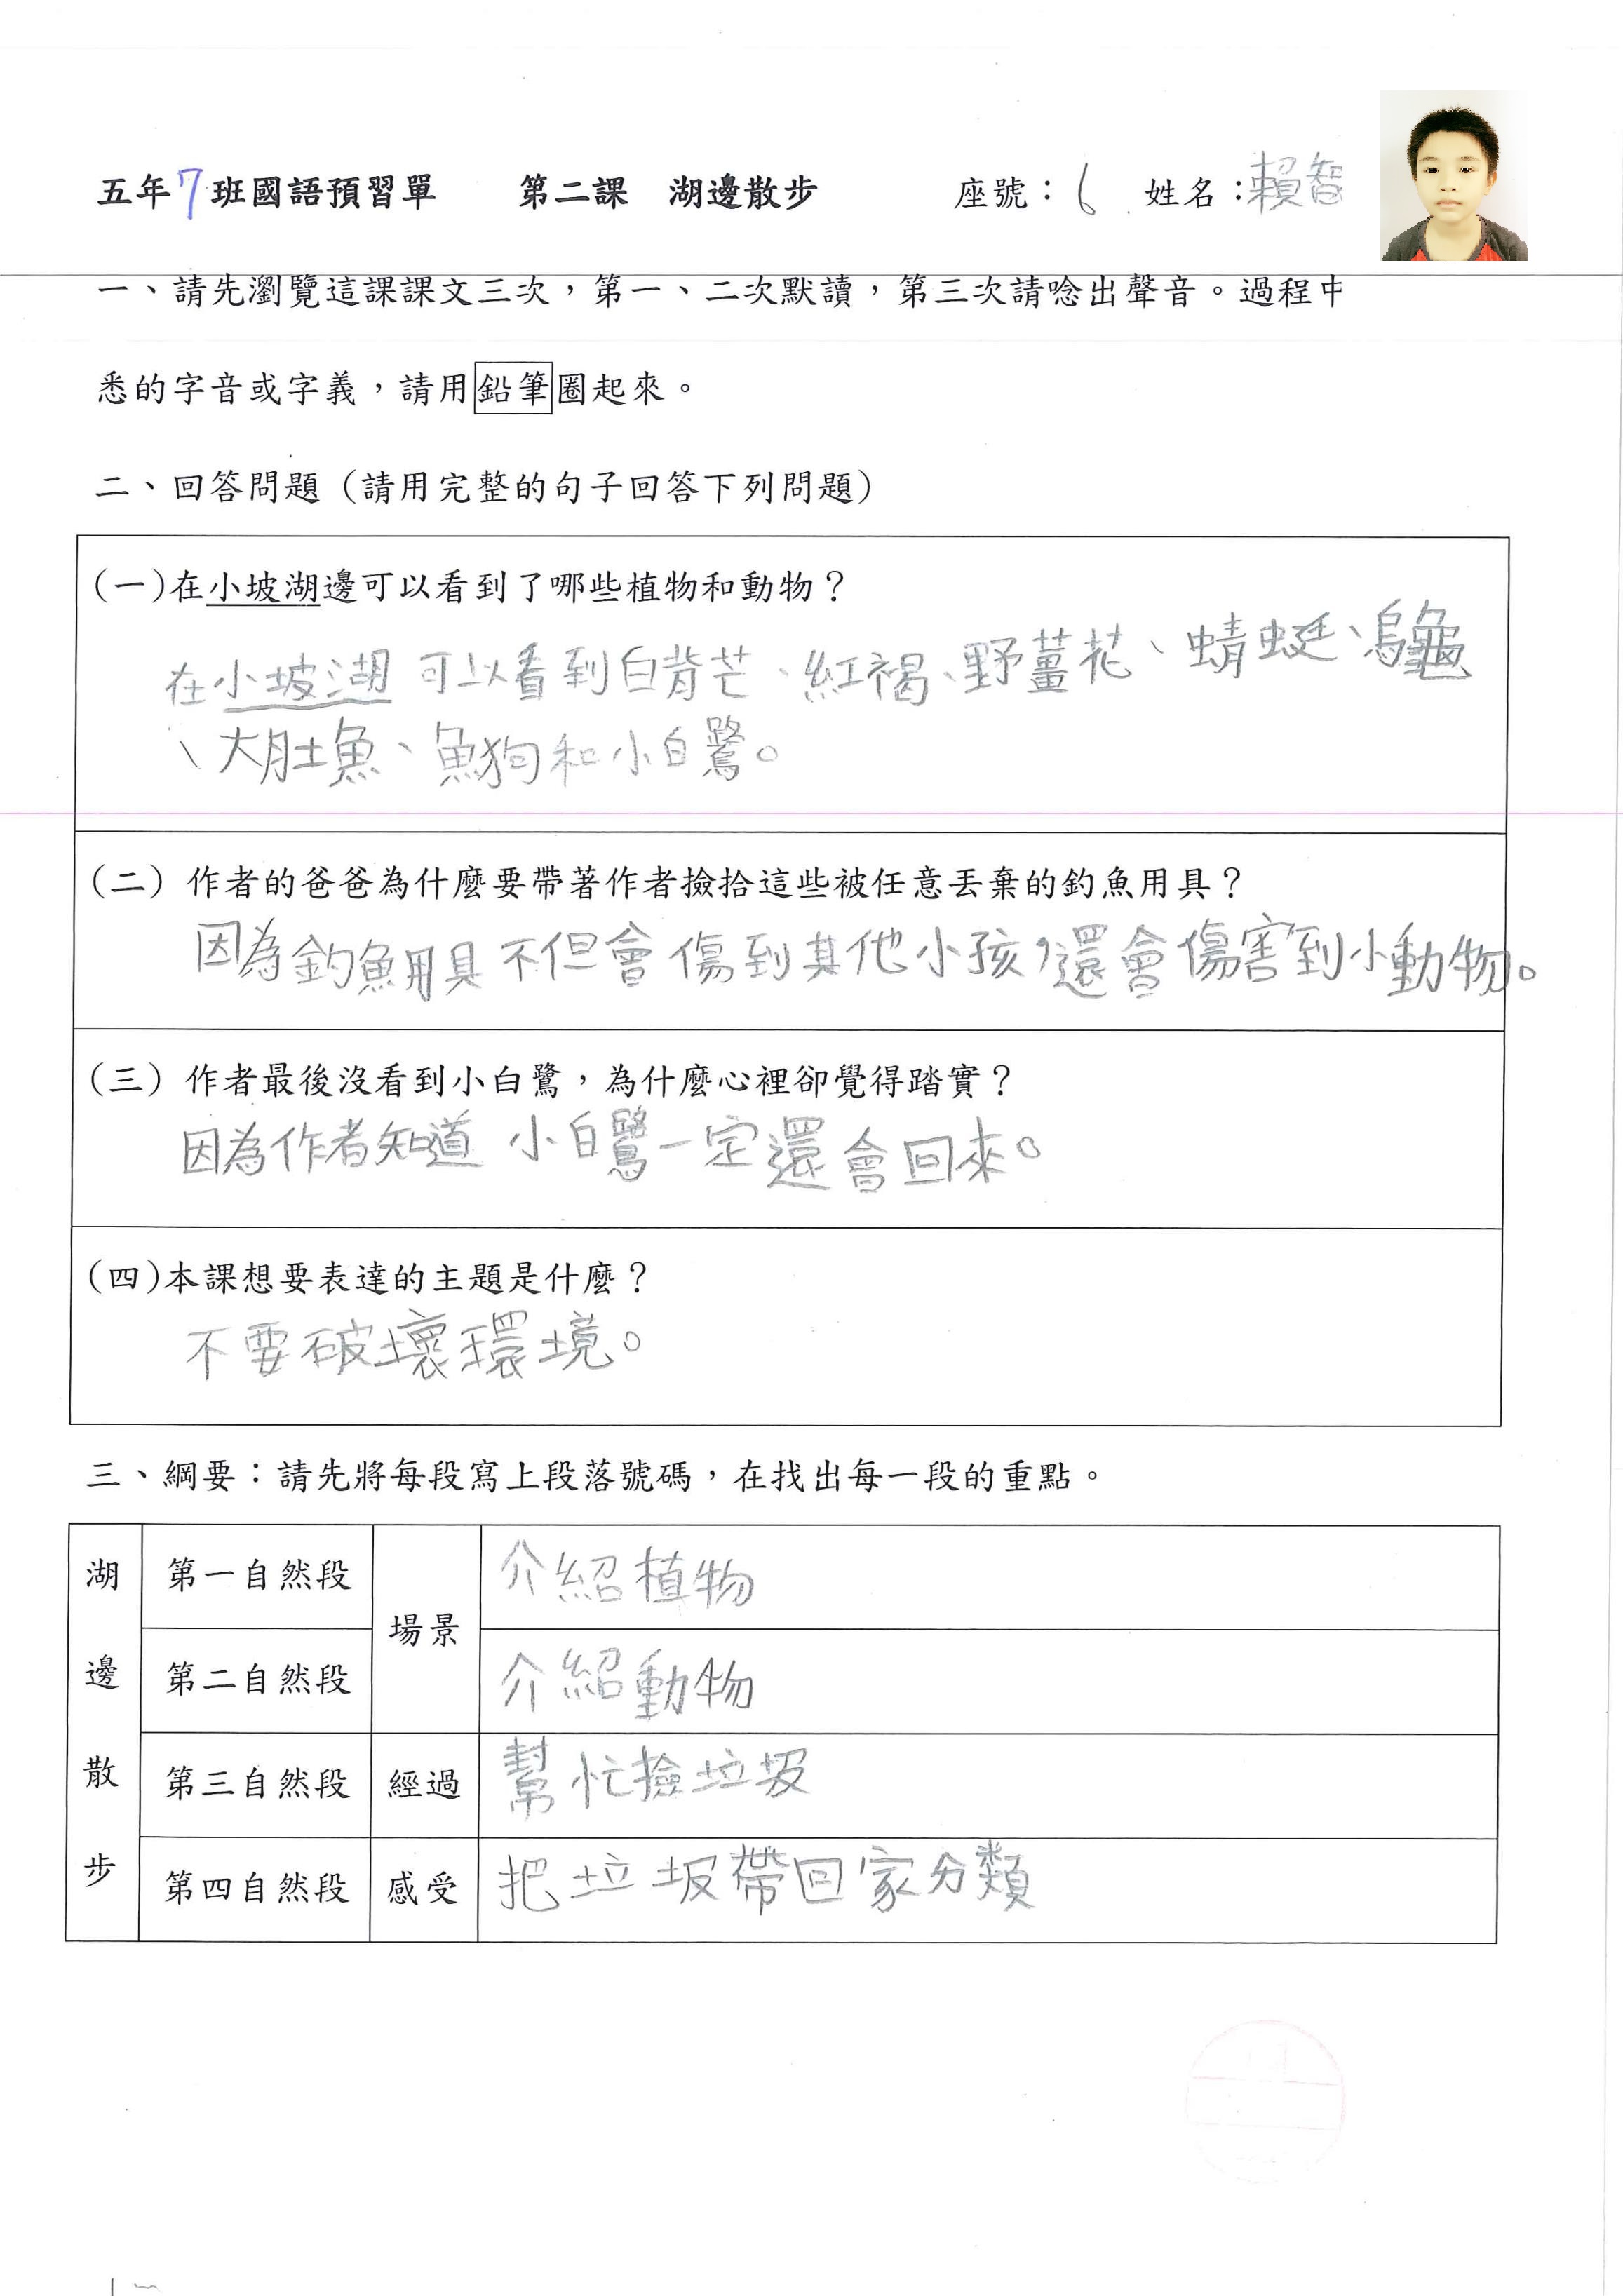 五年7班國語預習單 第二課 湖邊散步 座號：6 姓名：賴智
一、請先瀏覽這課課文三次，第一、二次默讀，第三次請唸出聲音。過程中
悉的字音或字義，請用鉛筆圈起來。
二、回答問題（請用完整的句子回答下列問題）
(一)在小坡湖邊可以看到了哪些植物和動物？
在小坡湖可以看到白背芒、紅褐、野薑花、蜻蜓、烏龜
、大肚魚、魚狗和小白鷺。
(二) 作者的爸爸為什麼要帶著作者撿拾這些被任意丟棄的釣魚用具？
因為釣魚用具不但會傷到其他小孩，還會傷害到小動物。
(三) 作者最後沒看到小白鷺，為什麼心裡卻覺得踏實？
因為作者知道小白鷺一定還會回來。
(四)本課想要表達的主題是什麼？
不要破壞環境。
三、綱要：請先將每段寫上段落號碼，在找出每一段的重點。
湖邊散步
第一自然段 場景 介紹植物
第二自然段 介紹動物
第三自然段 經過 幫忙撿垃圾
第四自然段 感受 把垃圾帶回家分類